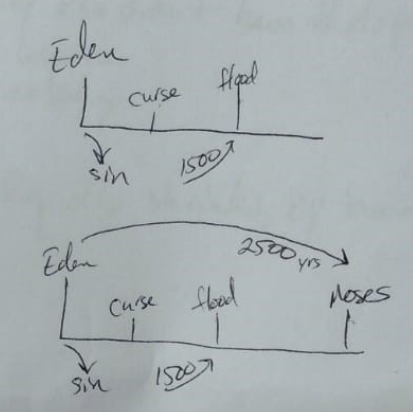 Eden
curse flood
sin 1500
2500 yrs
Eden curse flood Moses
sin 1500